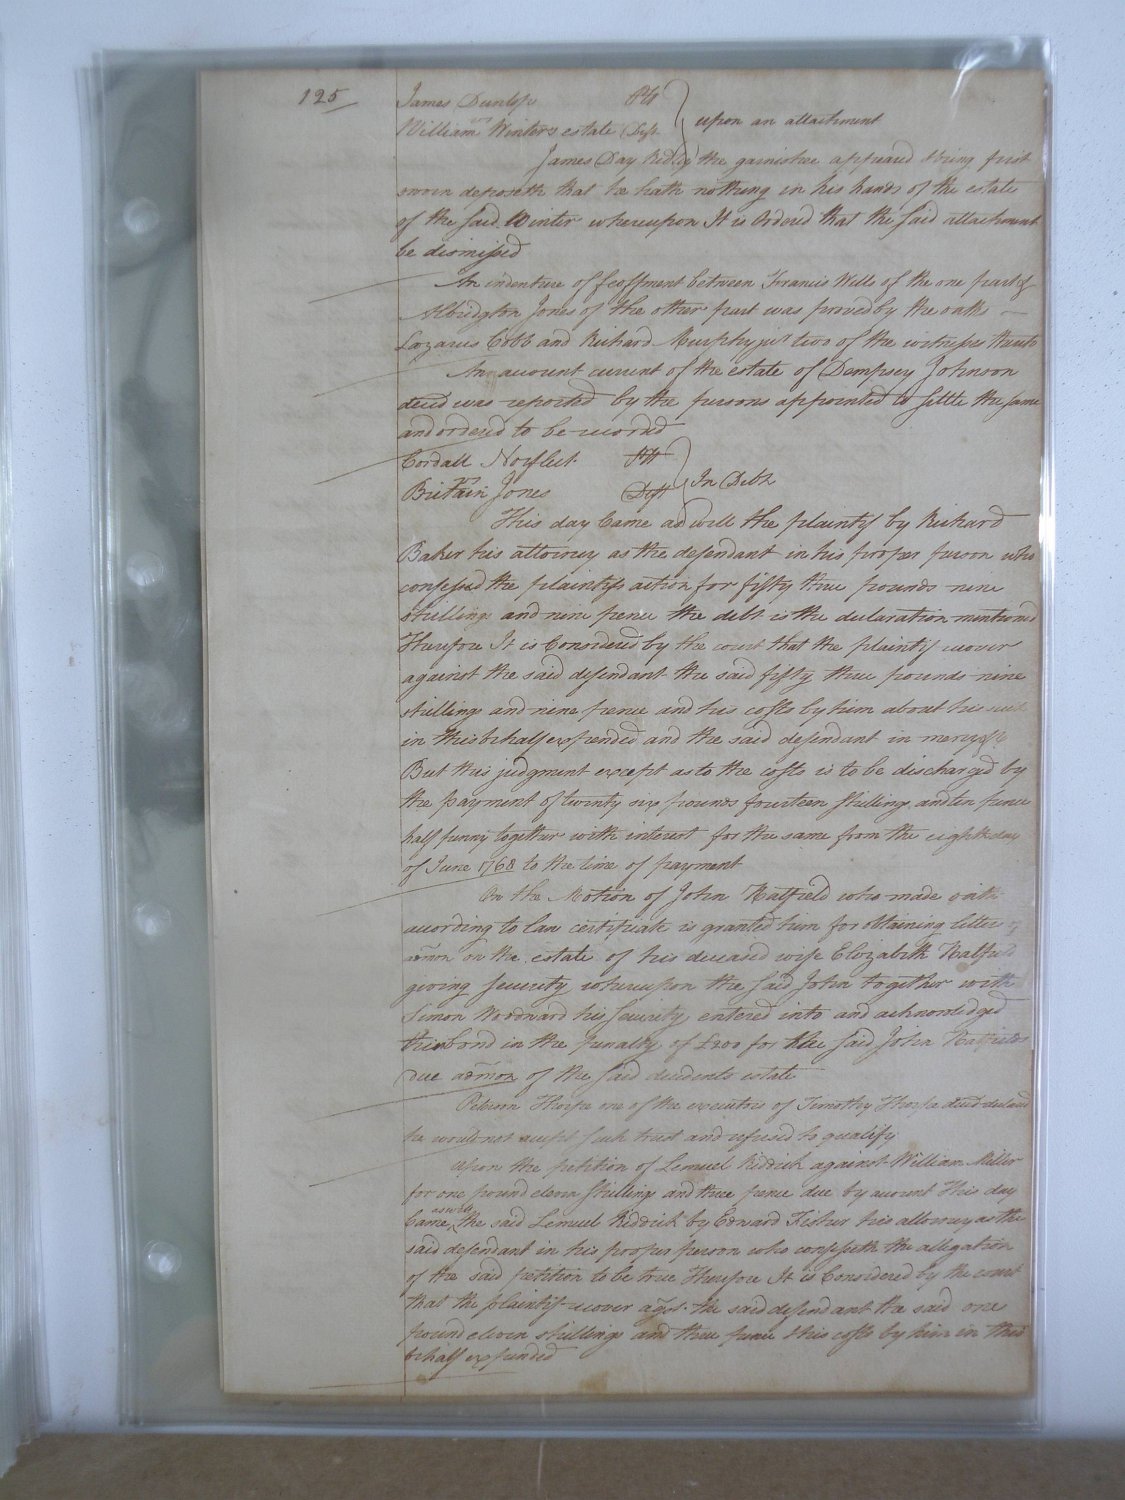 125
James Dunlop Plt
William Winters estate Deft
upon an attachment
James Day Ridley the garnishee appeared & being first
sworn deposeth that he hath nothing in his hands of the estate
of the said Winter whereupon It is Ordered that the said attachment
be dismissed
An indenture of feoffment between Francis Wills of the one part &
Albridgton Jones of the other part was proved by the oaths
Lazarus Cobb and Richard Murphy jur two of the witnesses thereto
An account current of the estate of Dempsey Johnson
decd was reported by the persons appointed to settle the same
and ordered to be record
Cordall Norfleet Plt
Britain Jones Deft
In Debt
This day Came as well the plaintif by Richard
Baker his attorney as the defendant in his proper person who
confessed the plaintifs action for fifty three pounds nine
shillings and nine pence the debt in the declaration mentioned
Therefore It is Considered by the court that the plaintif recover
against the said defendant the said fifty three pounds nine
shillings and nine pence and his costs by him about his suit
in this behalf expended and the said defendant in mercy &c
But this judgment except as to the costs is to be discharged by
the payment of twenty six pounds fourteen shillings and ten pence
half penny together with interest for the same from the eighth day
of June 1768 to the time of payment
On the Motion of John Hatfield who made oath
according to law certificate is granted him for obtaining letter
admon on the estate of his deceased wife Elizabeth Hatfield
giving security whereupon the said John together with
Simon Woodward his security entered into and acknowledged
this bond in the penalty of £200 for the said John Hatfields
due admon of the said decedents estate
Peterson Thorpe one of the executors of Timothy Thorpe decd declared
he would not accept such trust and refused to qualify
Upon the petition of Lemuel Riddick against William Miller
for one pound eleven shillings and three pence due by account This day
Came as well the said Lemuel Riddick by Edward Fisher his attorney as the
said defendant in his proper person who confesseth the allegation
of the said petition to be true Therefore It is Considered by the court
that the plaintif recover agst the said defendant the said one
pound eleven shillings and three pence & his costs by him in this
behalf expended